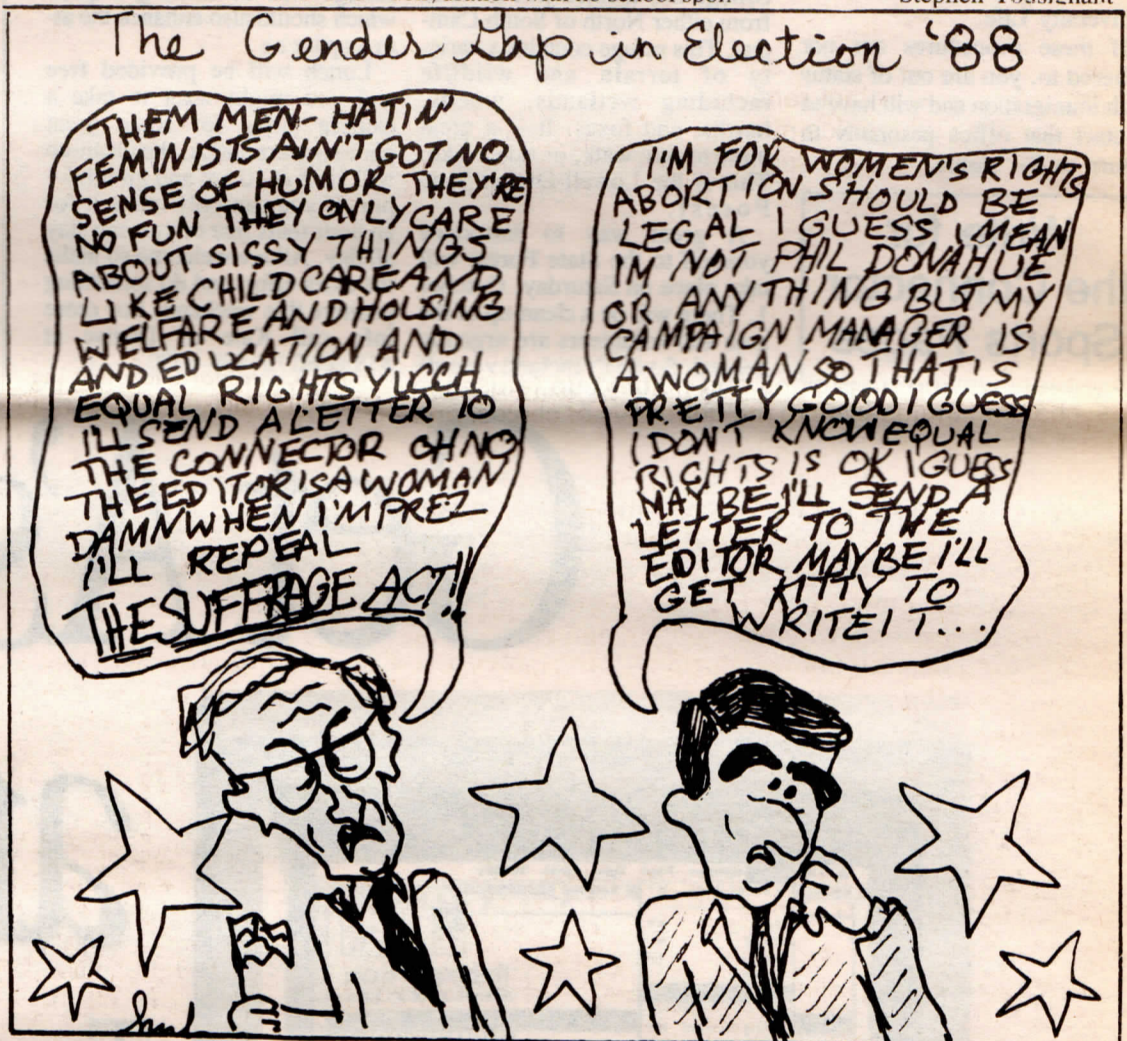 Stephen Tousignant
The Gender Gap in Election '88
THEM MEN-HATIN'
FEMINISTS AIN'T GOT NO
SENSE OF HUMOR THEY'RE
NO FUN THEY ONLY CARE
ABOUT SISSY THINGS
LIKE CHILD CARE AND
WELFARE AND HOUSING
AND EDUCATION AND
EQUAL RIGHTS YUCCH
ILL SEND A LETTER TO
THE CONNECTOR OH NO
THE EDITOR IS A WOMAN
DAMN WHEN I'M PREZ
I'LL REPEAL
THE SUFFRAGE ACT!!
I'M FOR WOMEN'S RIGHTS
ABORTION SHOULD BE
LEGAL I GUESS I MEAN
IM NOT PHIL DONAHUE
OR ANYTHING BUT MY
CAMPAIGN MANAGER IS
A WOMAN SO THAT'S
PRETTY GOOD I GUESS
I DON'T KNOW EQUAL
RIGHTS IS OK I GUESS
MAYBE I'LL SEND A
LETTER TO THE
EDITOR MAYBE I'LL
GET KITTY TO
WRITE IT...